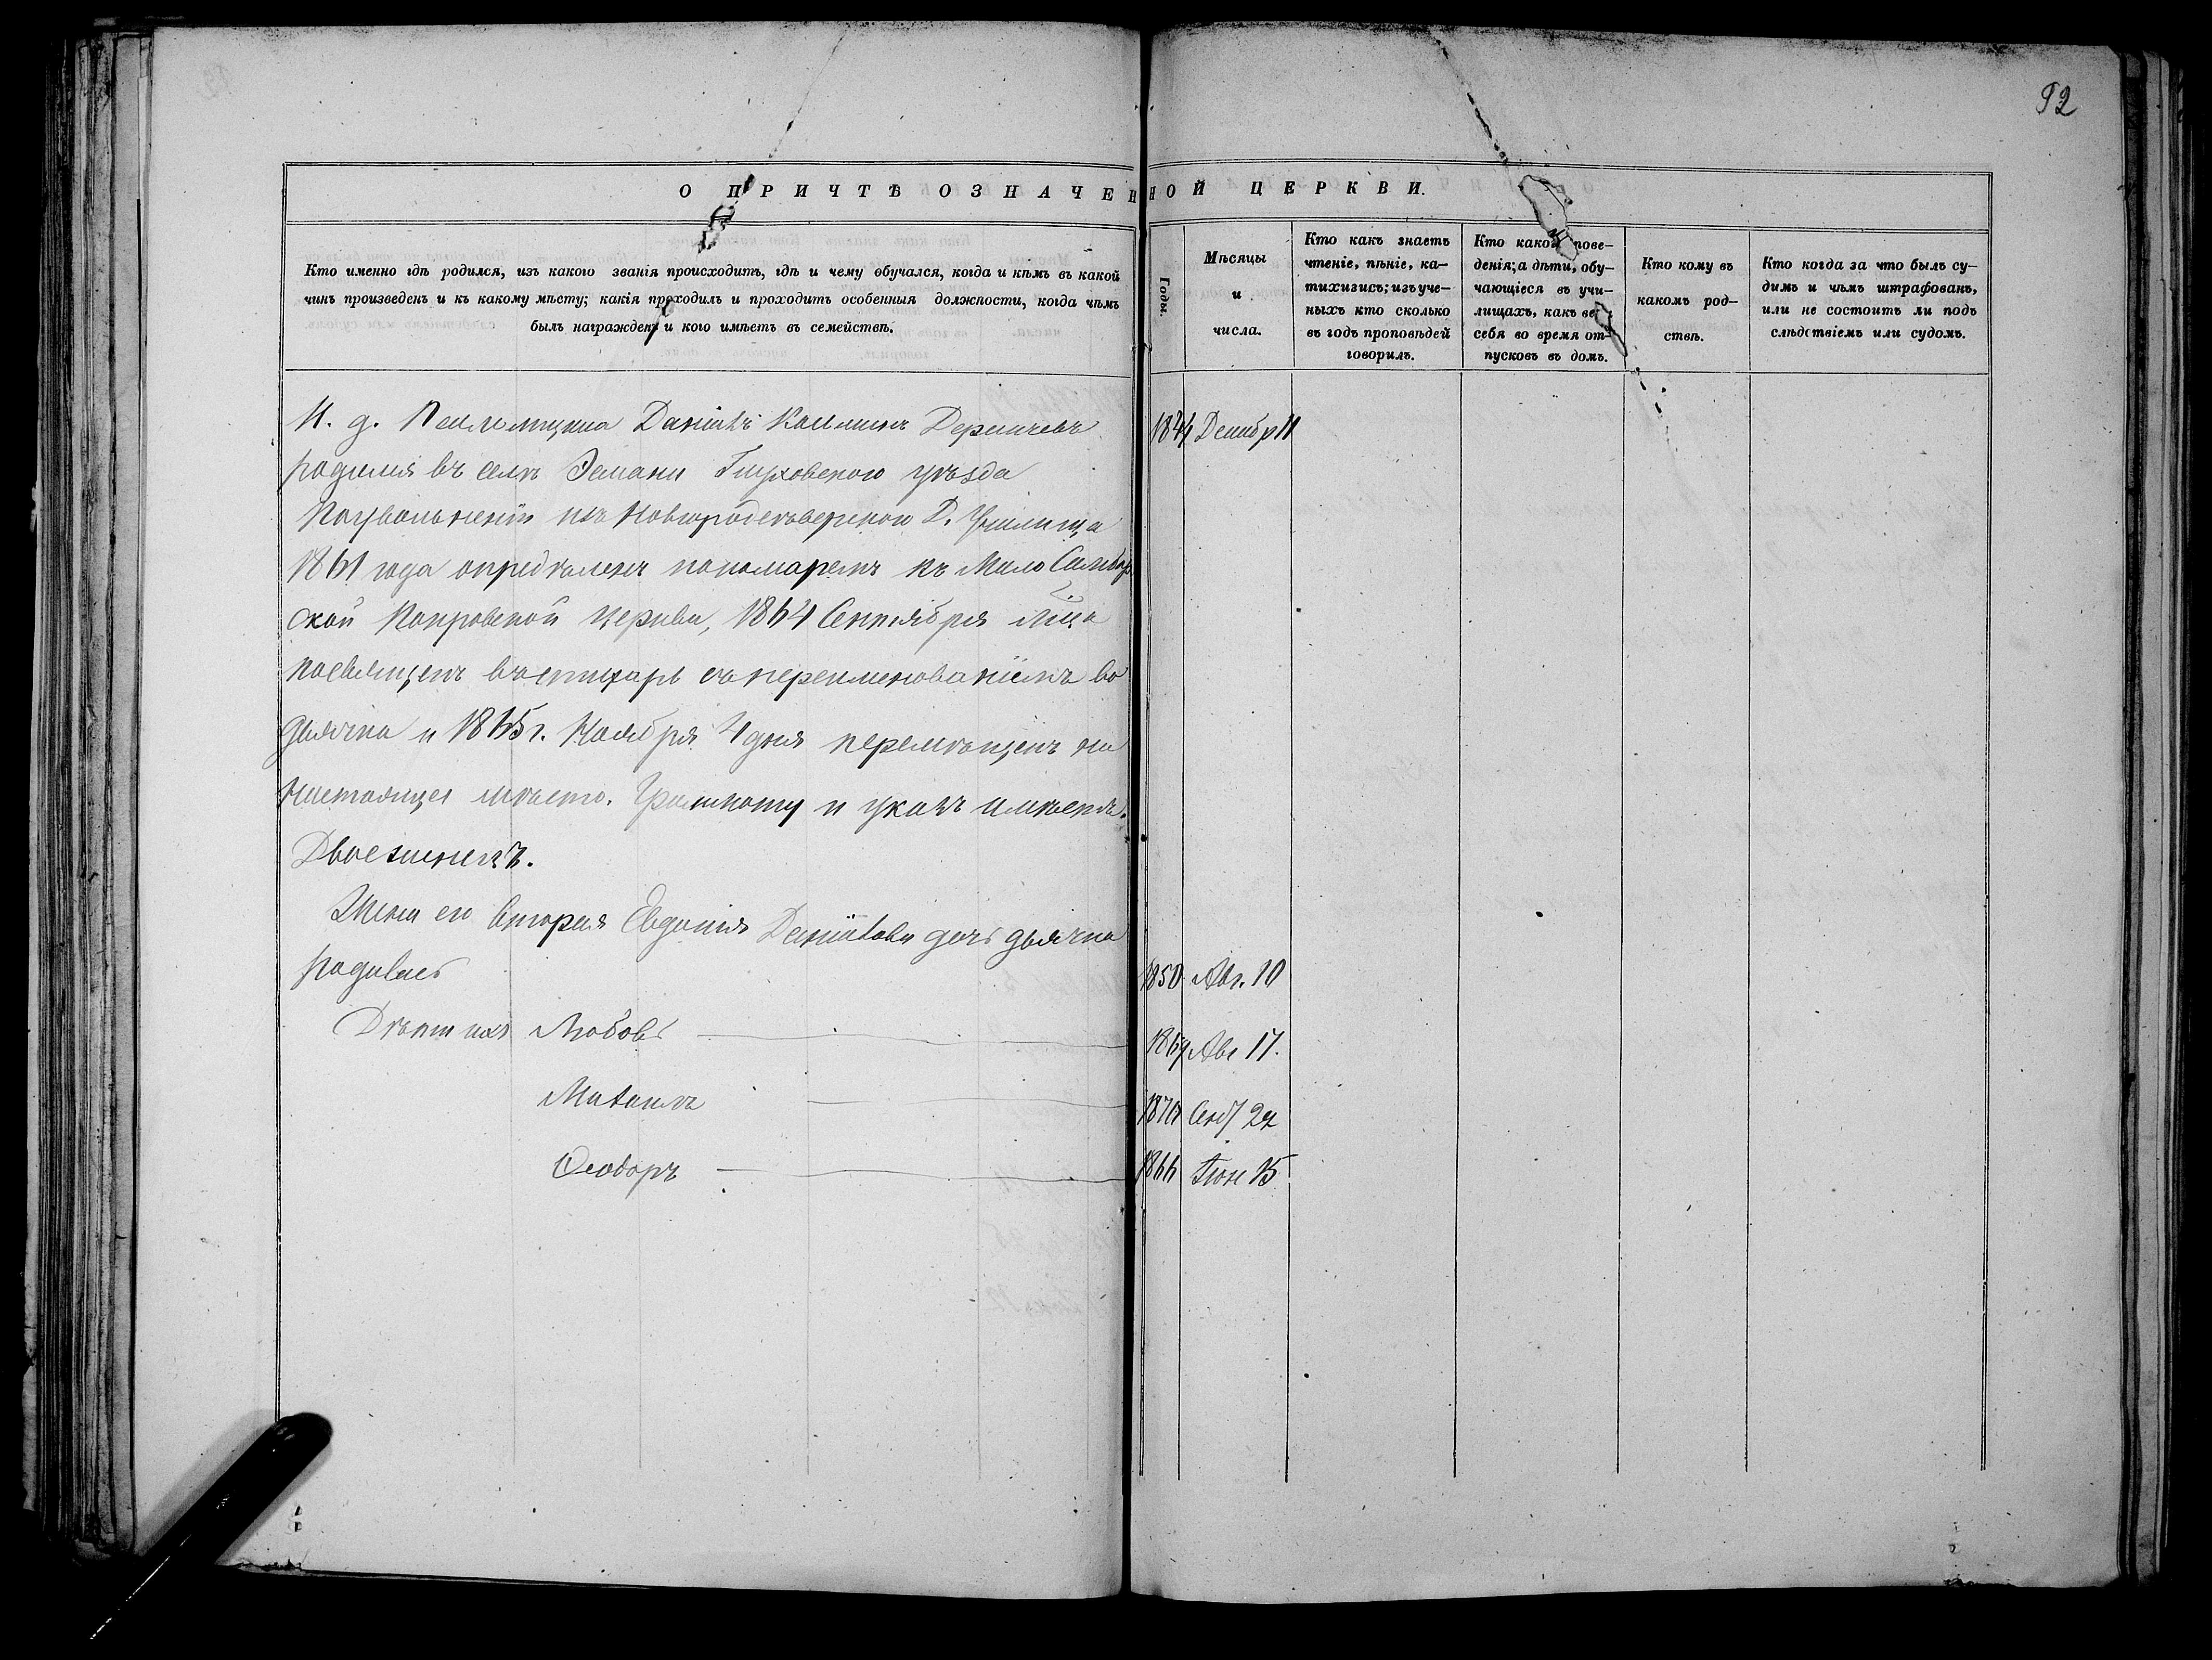 92
О ПРИЧТѢ ОЗНАЧЕННОЙ ЦЕРКВИ.
Кто именно гдѣ родился, изъ какого званія происходитъ, гдѣ и чему обучался, когда и кѣмъ въ какой
чинъ произведенъ и къ какому мѣсту; какія проходилъ и проходитъ особенныя должности, когда чѣмъ
былъ награжденъ и кого имѣетъ въ семействѣ.
Годы.
Мѣсяцы
и
числа.
Кто какъ знаетъ
чтеніе, пѣніе, ка-
тихизисъ; изъ уче-
ныхъ кто сколько
въ годъ проповѣдей
говорилъ.
Кто какой пове-
денія; а дѣти, обу-
чающіеся въ учи-
лищахъ, какъ ве
себя во время от-
пусковъ въ домъ.
Кто кому въ
какомъ род-
ствѣ.
Кто когда за что былъ су-
димъ и чѣмъ штрафованъ,
или не состоитъ ли подъ
слѣдствіемъ или судомъ.
И. д. Псаломщика Даніилъ 1844 Декабр 11
родился въ селѣ Эсмани Глуховскаго уѣзда
По увольненіи изъ Новгородсѣверскаго Д. Училища
1861 года опредѣленъ пономаремъ къ Мало Самбор
ской Покровской церкви, 1864 Сентября
посвященъ въ стихарь съ переименованіемъ во
дьячка и 1865 г. Ноября 4 дня перемѣщенъ на
настоящее мѣсто. Грамоту и указъ имѣетъ.
Двоеженецъ.
Жена его вторая Евдокія Даніилова дочь дьячка
родилась 1850 Авг. 10
Дѣти ихъ Любовь Авг 17.
Михаилъ 1870
Ѳеодоръ 1866 Іюн 15